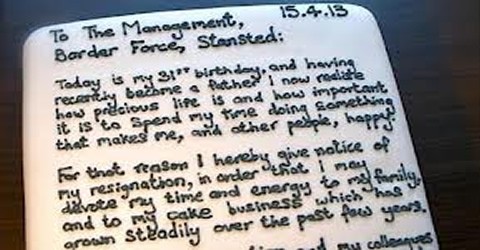 15.4.13
To The Management,
Border Force, Stansted:
Today is my 31st birthday, and having
recently become a father I now realise
how precious life is and how important
it is to spend my time doing something
that makes me, and other people, happy.
For that reason I hereby give notice of
my resignation, in order that I may
devote my time and energy to my family,
and to my cake business which has
grown steadily over the past few years.
my colleagues